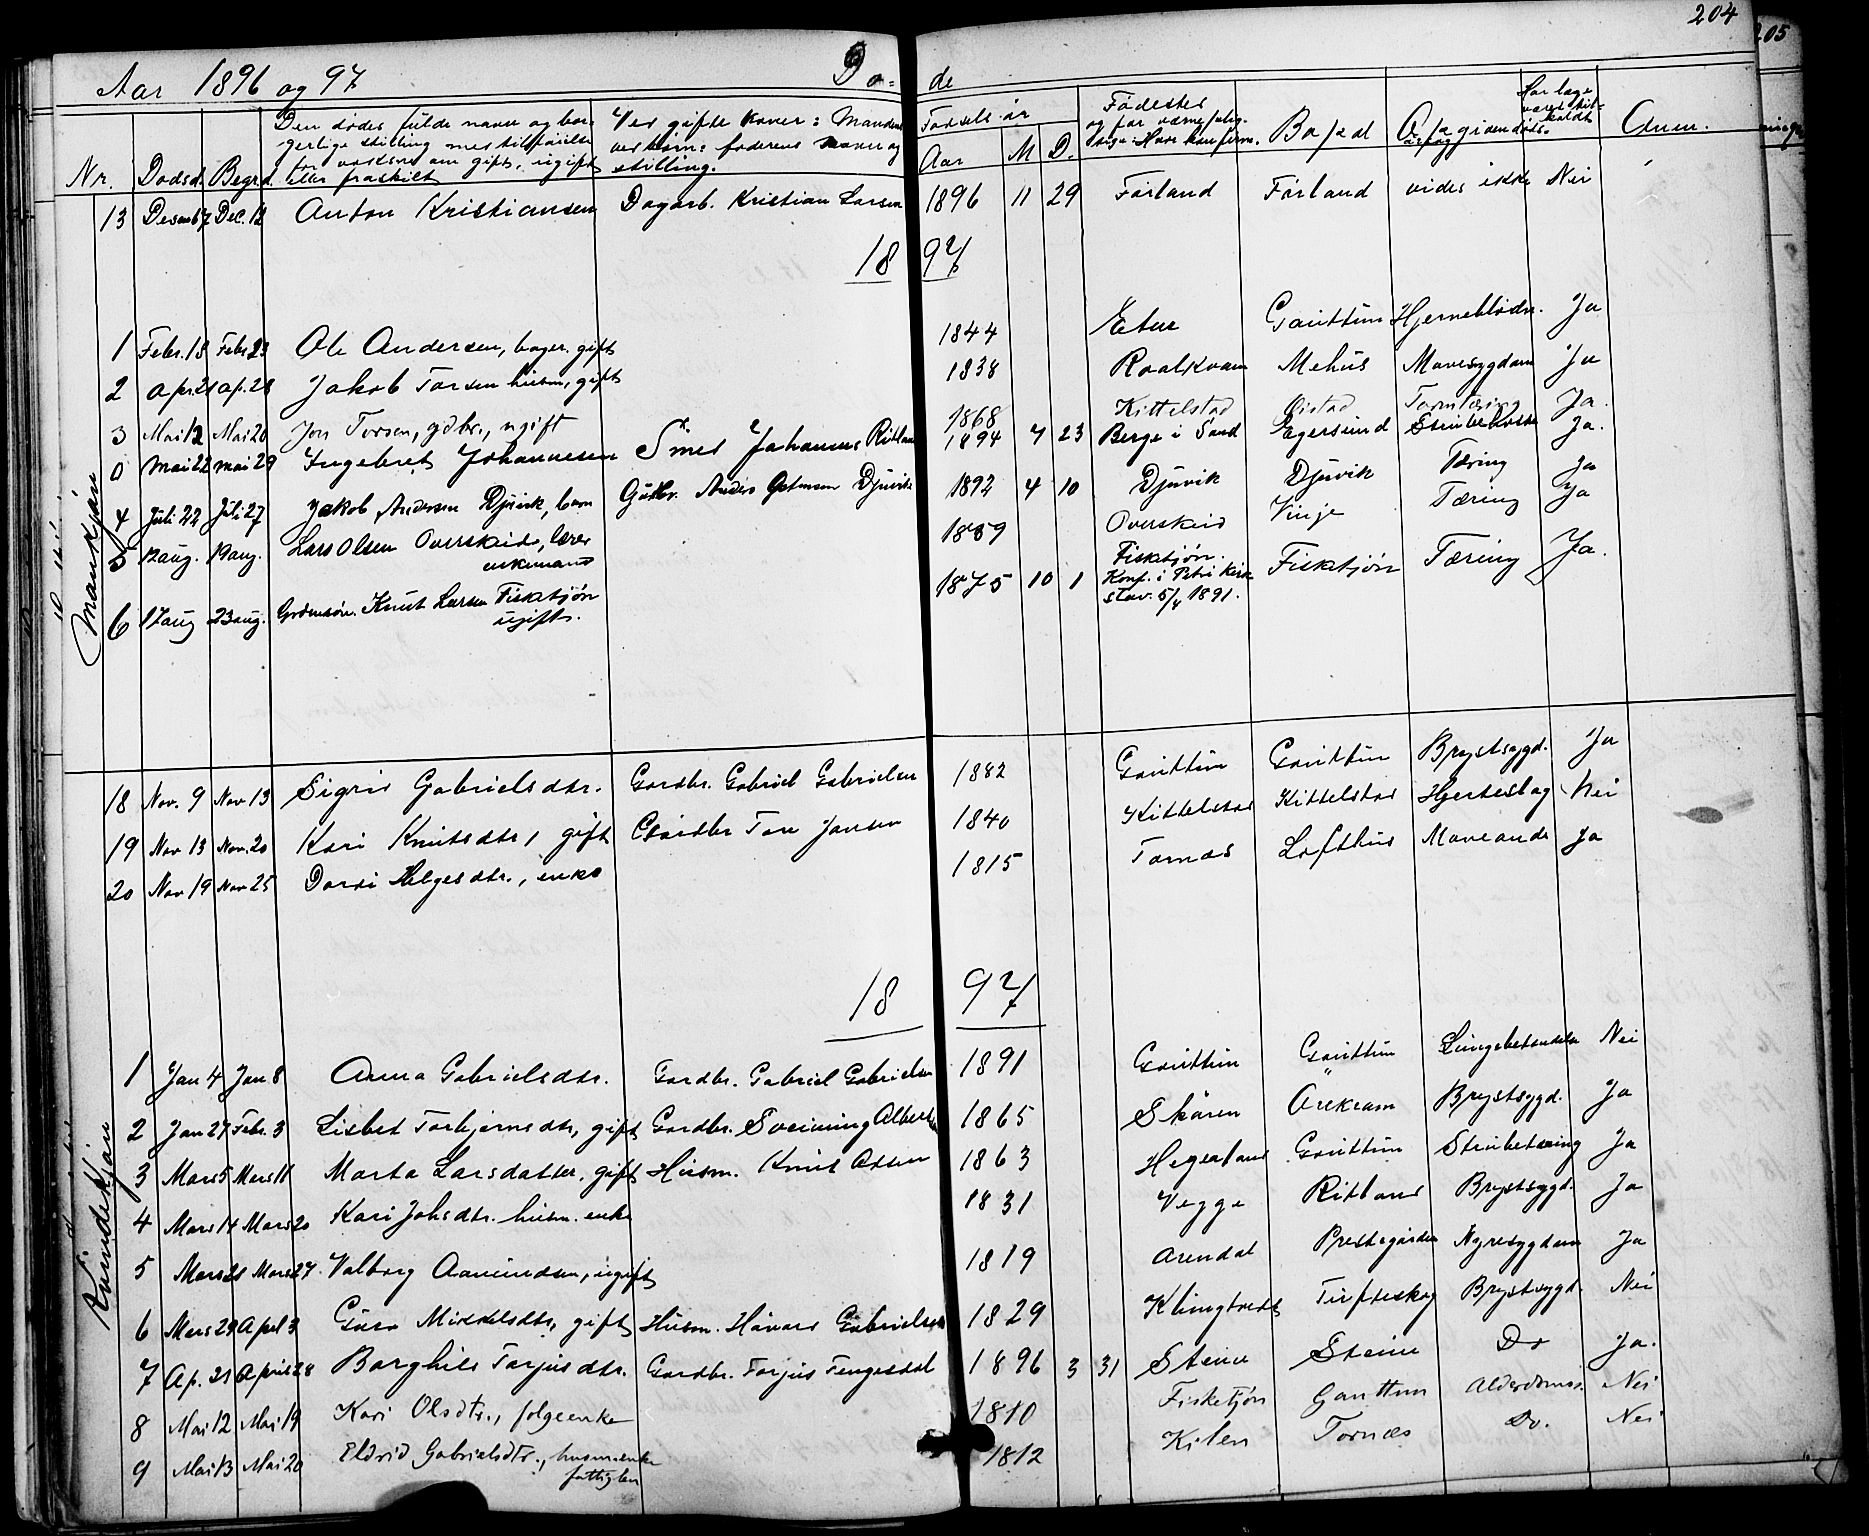 204
205
Aar 1896 og 97
Dö= de
Nr. Dødsd. Begrd. Den dødes fulde navn og borgerlige stilling med tilføielse for voksne om gift, ugift eller fraskilt Ved gifte koner: Mandens ved børn: faderens navn og stilling. Fødsels-år Aar M D. Fødested Bopæl Opgiven dødsårsag Har læge været tilkaldt Anm.
13 Desemb 7 Dec. 12 Anton Kristiansen Dagarb. Kristian Larsen 1896 11 29 Førland Førland vides ikke Nei
18 97
Mankjøn
1 Febr. 18 Febr 23 Ole Andersen, gift 1844 Etne Gauttun Hjerneblødn. Ja
2 Apr. 21 Ap. 28 Jakob Torsen husm, gift 1838 Roalkvam Mehus Mavesygdom Ja
3 Mai 12 Mai 20 Jon Torsen, gdbr., ugift 1868 Kittelstad Øistad Tarmtæring Ja.
0 Mai 22 Mai 29 Ingebret Johannesen Smed Johannes Ritland 1894 7 23 Berge i Sand Egersund Strubehoste Ja.
4 Juli 22 Juli 27 Jakob Andersen Djuvik, barn Gdbr. Anders Djuvik 1892 4 10 Djuvik Djuvik Tæring Ja
5 12 aug. 19 aug. Lars Olsen Overskeid, lærer enkemand 1859 Overskeid Vinje Tæring Ja
6 17 aug 23 aug. Grdmsøn. Knut Larsen Fisktjøn ugift. 1875 10 1 Fisktjøn. Konf. i Petri kirk Stav. 5/4 1891. Fisktjøn Tæring Ja.
18 Nov. 9 Nov 13 Sigrid Gabrielsdtr. Gardbr. Gabriel Gabrielsen 1882 Gauttun Gauttun Brystsygd. Ja
19 Nov 13 Nov. 20 Kari Knutsdtr, gift Gardbr Tore Jansen 1840 Kittelstad Kittelstad Hjerteslag Nei
20 Nov 19 Nov 25 Dordi Helgesdtr., enke 1815 Tornæs Lofthus Maveonde Ja
18 97
Kvindekjøn
1 Jan 4 Jan 8 Anna Gabrielsdtr. Gardbr. Gabriel Gabrielsen 1891 Gauttun Gauttun Lungebetændelse Nei
2 Jan 27 Febr. 3 Lisbet Torbjørnsdtr, gift Gardbr. Sveinung Albert 1865 Skåren Årekvam Brystsygd. Ja
3 Mars 5 Mars 11 Marta Larsdatter. gift Husm. Knut Olsen 1863 Hegeland Gauttun Strubetæring Ja
4 Mars 14 Mars 20 Kari Johsdtr. husm. enke 1831 Vegge Ritland Brystsygd. Ja
5 Mars 21 Mars 27. Valborg Aamundsen, ugift 1819 Arendal Prestegården Nyresygdom Ja
6 Mars 29 April 3 Guro Mikkelsdtr, gift Husm. Håvard Gabrielsen 1829 Klungtveit Tufteskog Brystsygd. Nei
7 Ap. 21 April 28 Borghild Torjusdtr. Gardbr. Torjus Tengesdal 1896 3 31 Steine Steine Do Ja.
8 Mai 12 Mai 19 Kari Olsdtr., folgeenke 1810 Fisketjøn Gauttun Alderdoms. Nei
9 Mai 13 Mai 20 Eldrid Gabrielsdtr., husm.enke fattiglem 1812 Kilen Tornæs Do. Nei